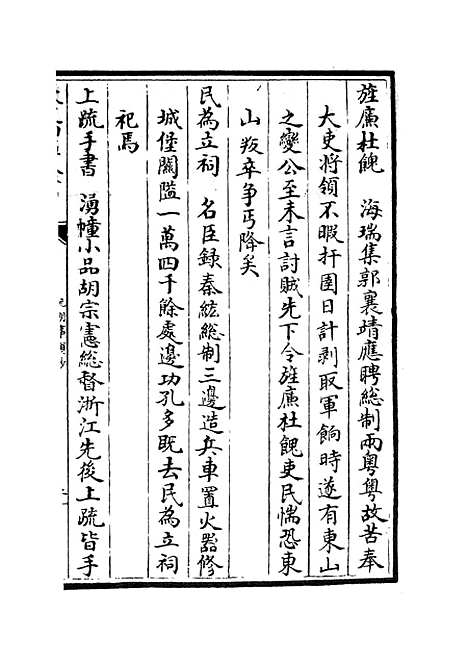 旌廉杜餽　海瑞集郭襄靖應聘總制兩粵粵故苦奉
大吏將領不暇扞圉日計剥取軍餉時遂有東山
之變公至未言討賊先下令旌廉杜餽吏民惴恐東
山叛卒爭丐降矣
民為立祠　名臣録秦紘總制三邊造兵車置火器修
城堡關隘一萬四千餘處邊功孔多既去民為立祠
祀焉
上疏手書　湧幢小品胡宗憲總督浙江先後上疏皆手
元明事類鈔